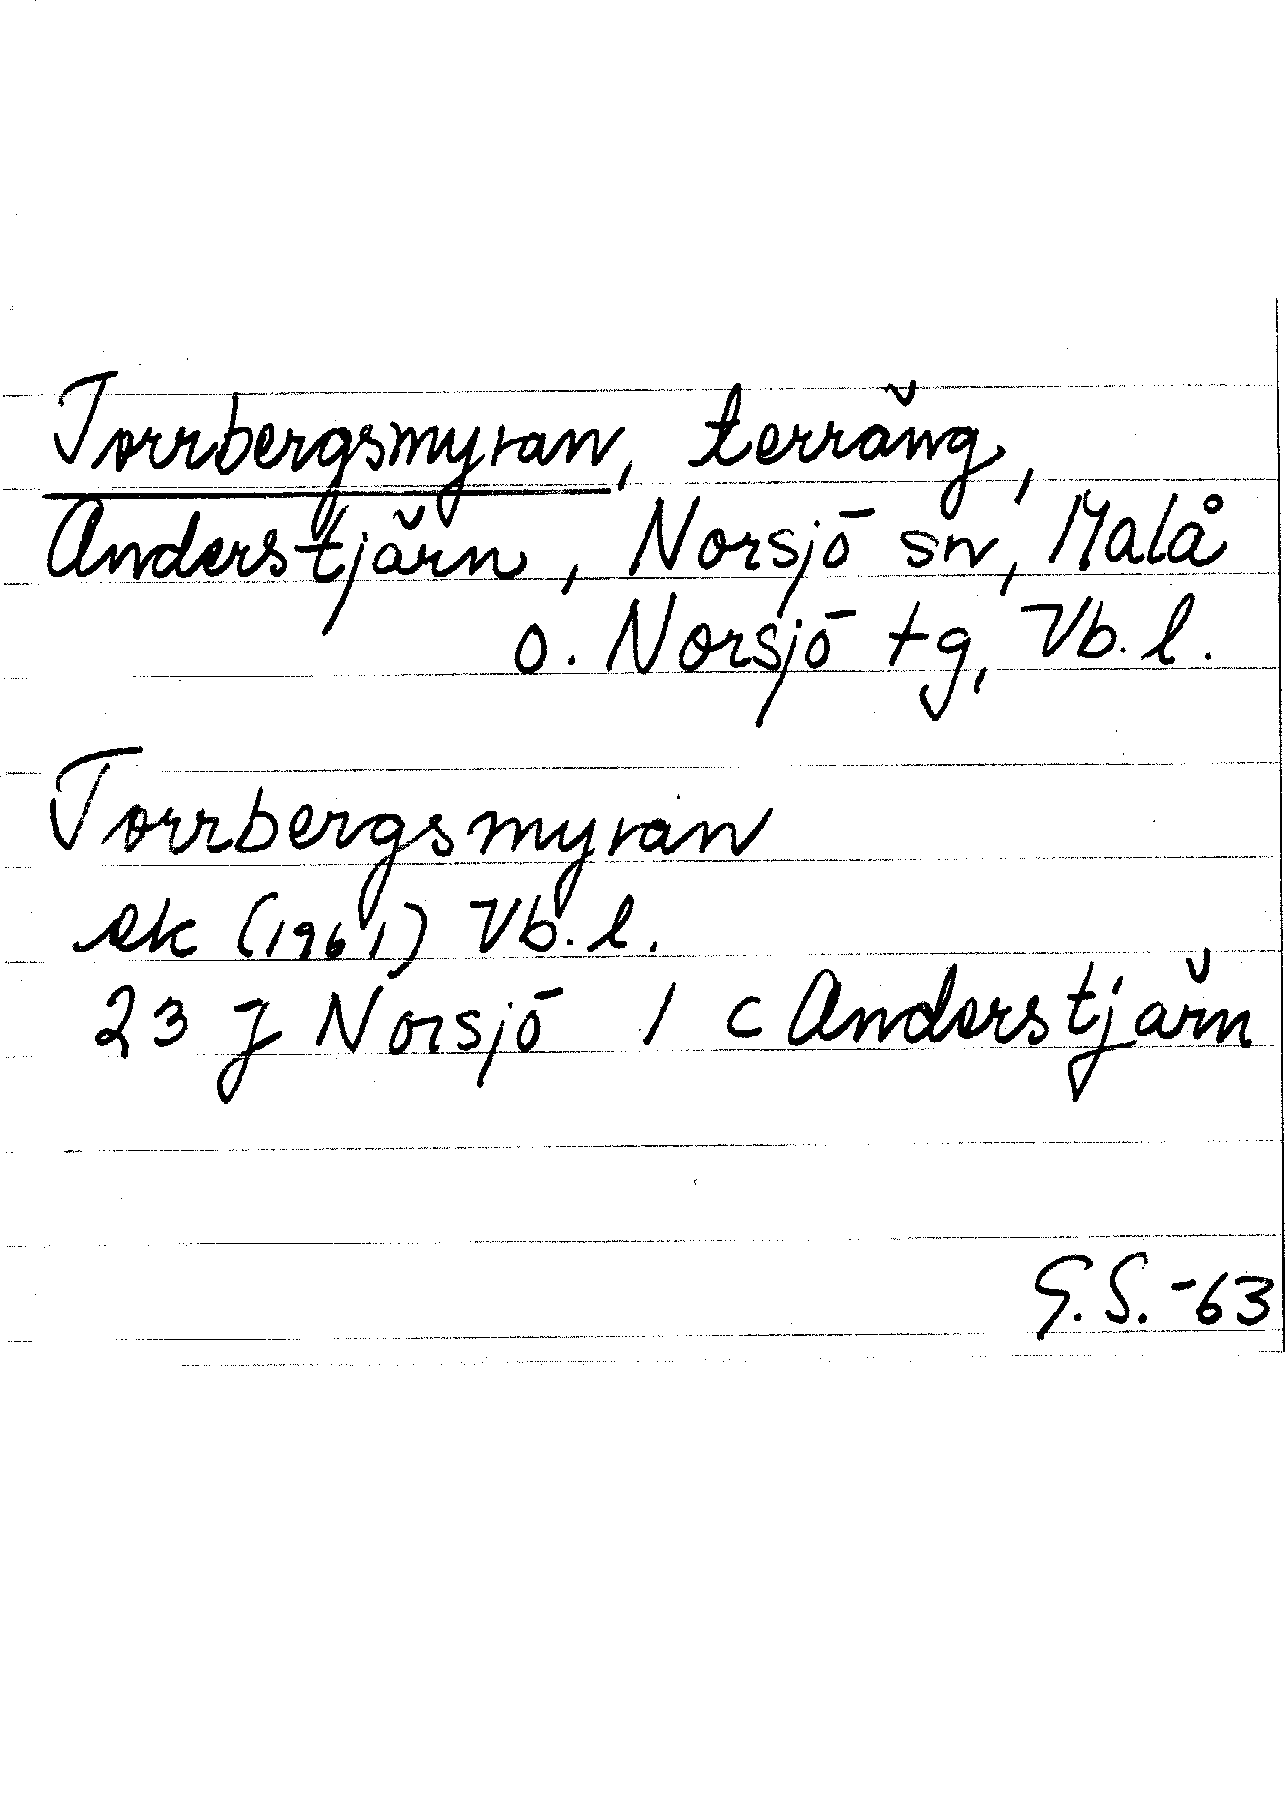 Torrbergsmyran, terräng,
Anderstjärn, Norsjö sn, Malå
o. Norsjö tg, Vb. l.
Torrbergsmyran
ek (1961) Vb. l.
23 J Norsjö 1 c Anderstjärn
G.S.-63